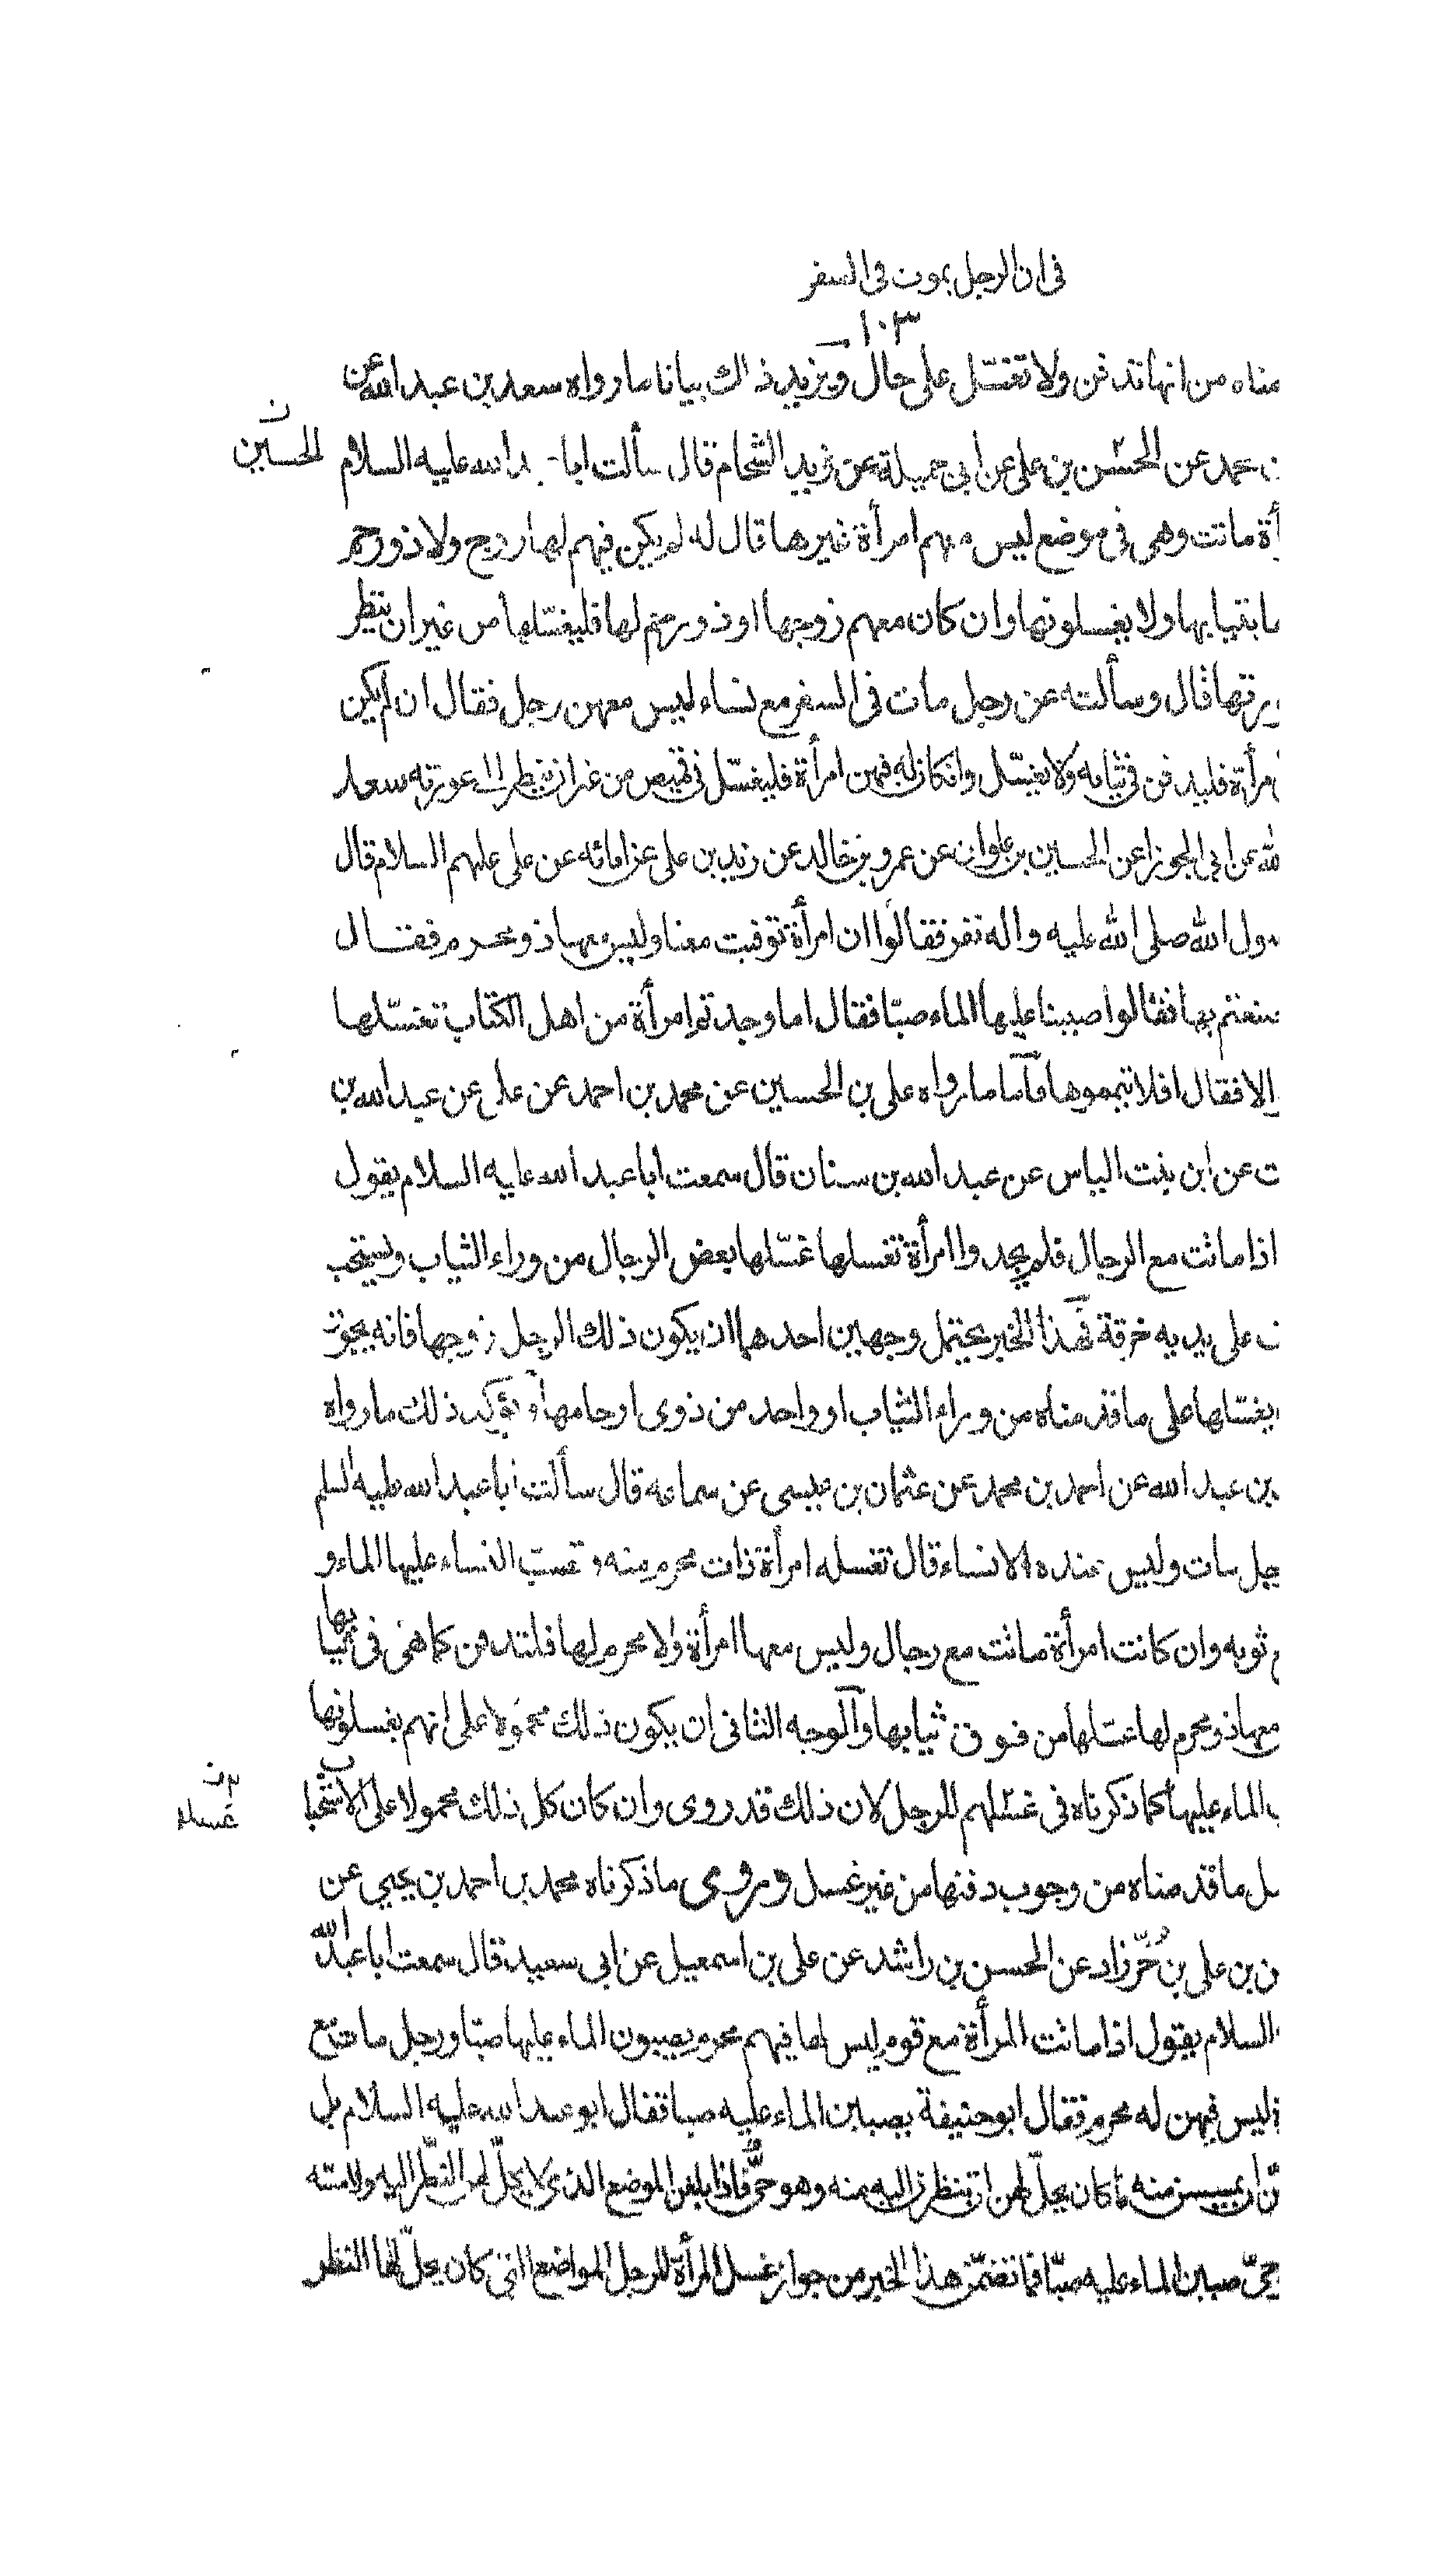 فى ان الرجل يموت فى السفر
١٠٣
مناه من انها تدفن ولا تغسّل على حال ويزيد ذلك بيانا ما رواه سعد بن عبد الله عن
محمد عن الحسن بن على عن ابى جميلة عن زيد الشحام قال سألت ابا عبد الله عليه السلام
الحسين ن
أة ماتت وهى فى موضع ليس معهم امرأة غيرها قال له لم يكن فيهم لها زوج ولا ذو رحم
ها بثيابها ولا يغسلونها وان كان معهم زوجها او ذو رحم لها فليغسّلها من غير ان ينظر
ورتها قال وسألته عن رجل مات فى السفر مع نساء ليس معهن رجل فقال ان لم يكن
مرأة فليدفن فى ثيابه ولا يغسّل وان كان له فيهن امرأة فليغسّل فى قميص من غير ان تنظر الى عورته سعد
لله عن ابى الجوزا عن الحسين بن علوان عن عمرو بن خالد عن زيد بن على عن ابائه عن على عليهم السلام قال
سول الله صلى الله عليه واله نفر فقالوا ان امرأة توفيت معنا وليس معها ذو محرم فقال
صنعتم بها فقالوا صببنا عليها الماء صبّا فقال اما وجدتم امرأة من اهل الكتاب تغسّلها
الا فقال افلا تيممموها فاما ما رواه على بن الحسين عن محمد بن احمد عن على عن عبد الله بن
ت عن ابن بنت الياس عن عبد الله بن سنان قال سمعت ابا عبد الله عليه السلام يقول
اذا ماتت مع الرجال فلم يجدوا امرأة تغسلها غسّلها بعض الرجال من وراء الثياب ويستحب
ف على يديه خرقة فهذا الخبر يحتمل وجهين احدهما ان يكون ذلك الرجل زوجها فانه يجوز
يغسّلها على ما قدمناه من وراء الثياب او واحد من ذوى ارحامها ويؤكد ذلك ما رواه
بن عبد الله عن احمد بن محمد عن عثمان بن عيسى عن سماعه قال سألت ابا عبد الله عليه السلم
جل مات وليس عنده الا نساء قال تغسله امرأة ذات محرم منه وتصبّ النساء عليها الماء و
ثوبه وان كانت امرأة ماتت مع رجال وليس معها امرأة ولا محرم لها فلتدفن كما هى فى ثيابها
معها ذو محرم لها غسّلها من فوق ثيابها والوجه الثانى ان يكون ذلك محمولا على انهم يغسلونها
ب الماء عليها كما ذكرناه فى غسّلهم للرجل لان ذلك قد روى وان كان كل ذلك محمولا على الاستحباب
غسله
ل ما قدمناه من وجوب دفنها من غير غسل وروى ما ذكرناه محمد بن احمد بن يحيى عن
ن بن على بن خُرّزاد عن الحسن بن راشد عن على بن اسمعيل عن ابى سعيد قال سمعت ابا عبد الله
السلام يقول اذا ماتت المرأة مع قوم ليس لها فيهم محرم يصبون الماء عليها صبّا ورجل مات مع
ة ليس فيهن له محرم فقال ابو حنيفة يصببن الماء عليه صبا فقال ابو عبد الله عليه السلام بل
ن ان يمسسن منه ما كان يحلّ لهن ان ينظرن اليه منه وهو حىّ فاذا بلغن الموضع الذى لا يحلّ لهن النظر اليه ولا مسّه
حىّ صببن الماء عليه صبّا فما تضمّن هذا الخبر من جواز غسل المرأة للرجل المواضع التى كان يحلّ لها النظر